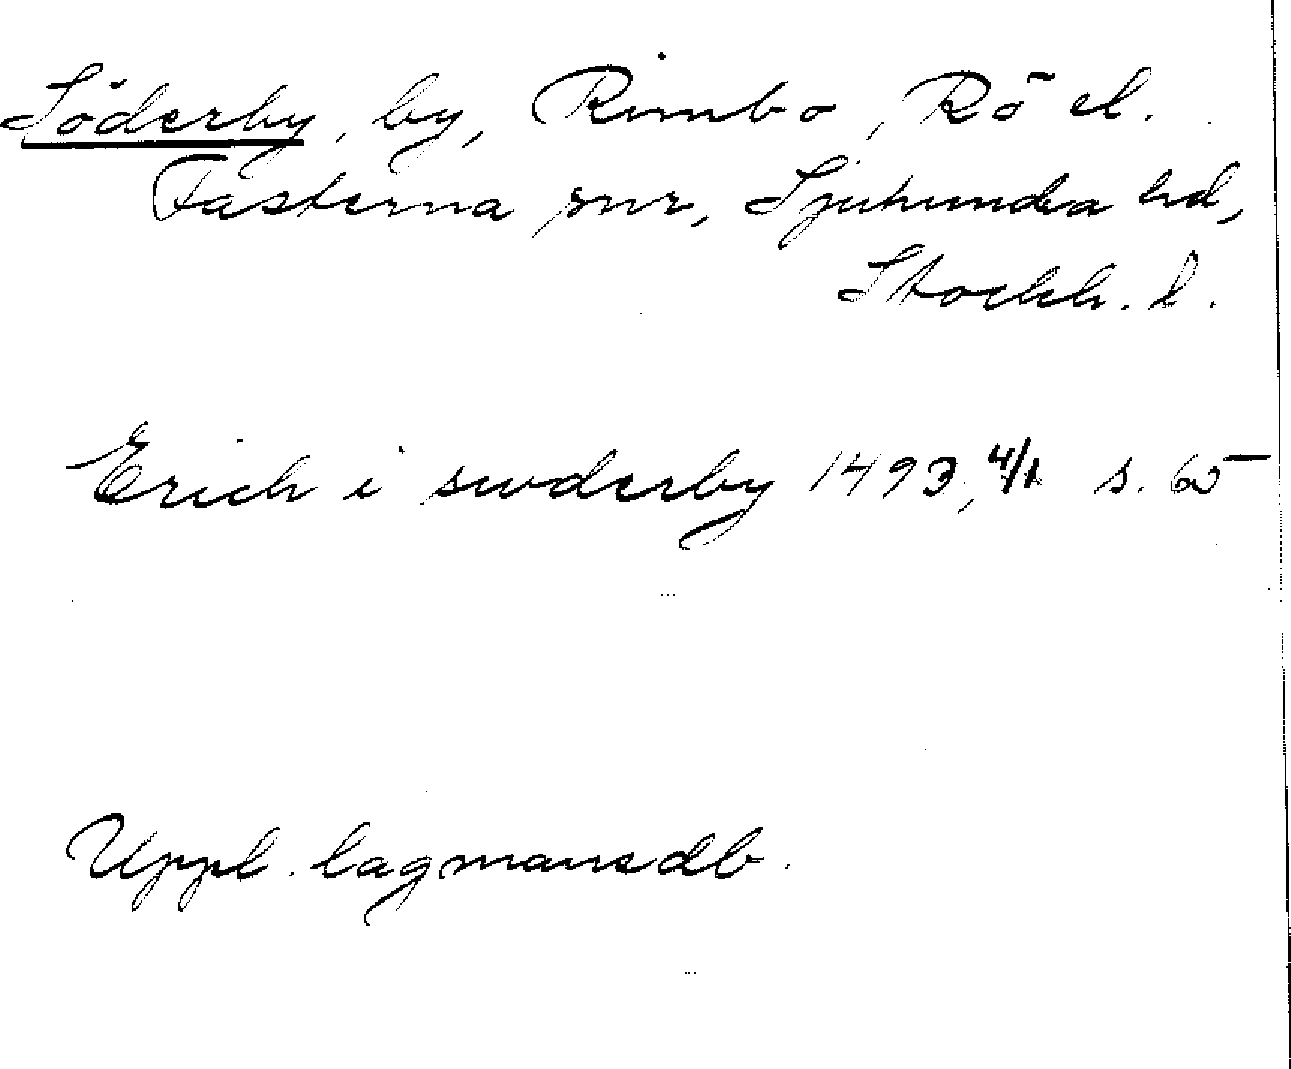 Söderby, by, Rimbo, Rö el.
Fasterna snr, Sjuhundra hd,
Stockh. l.
Erich i swderby 1493, 4/1 s. 65
Uppl. lagmansdb.